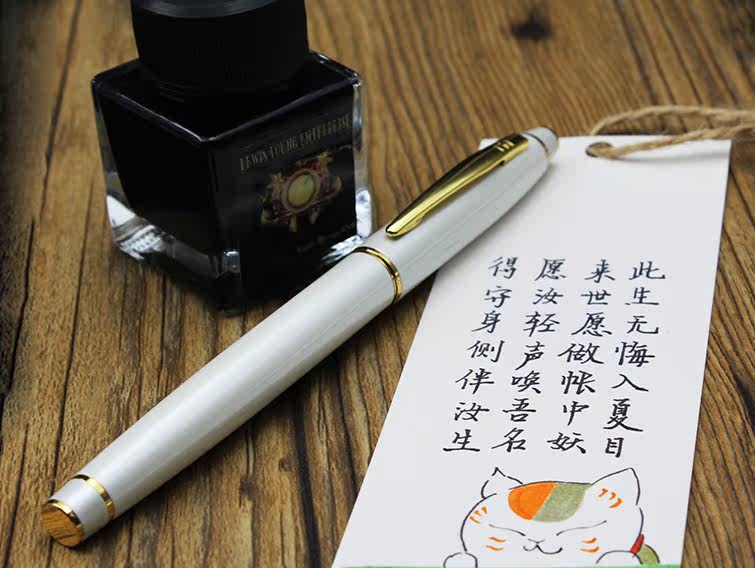 LEWIN YOUNG ENTERPRISE
此生无悔入夏目
来世愿做帐中妖
愿汝轻声唤吾名
得守身侧伴汝生